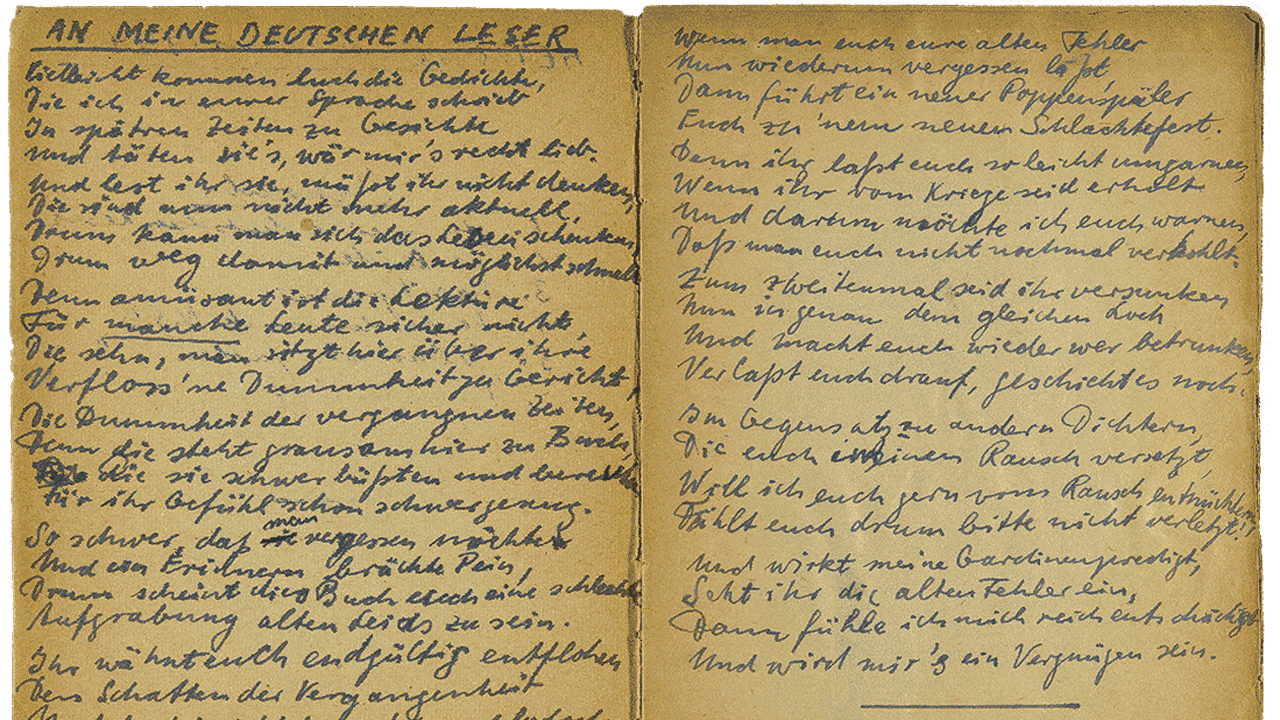 AN MEINE DEUTSCHEN LESER
Vielleicht kommen Euch die Gedichte,
Die ich in eurer Sprache schrieb
In spätren Zeiten zu Gesichte
Und täten sie's, wär mir's recht lieb.
Und lest ihr sie, müßt ihr nicht denken,
Die sind nun nicht mehr aktuell,
Drum kann man sich das Lesen schenken,
Drum weg damit und möglichst schnell
Denn amüsant ist die Lektüre
Für manche Leute sicher nicht,
Die sehn, man sitzt hier über ihre
Verfloss'ne Dummheit zu Gericht,
Die Dummheit der vergangnen Zeiten,
Denn die steht grausam hier zu Buch,
die sie schwer büßten und bereuten
Für ihr Gefühl schon schwer genug.
So schwer, daß man vergessen möchte
Und ein Erinnern brächte Pein,
Drum scheint dies Buch euch eine schlechte
Aufgrabung alten Leids zu sein.
Ihr wähnt euch endgültig entflohen
Dem Schatten der Vergangenheit
Wenn man euch eure alten Fehler
Nun wiederum vergessen läßt,
Dann führt ein neuer Poppenspäler
Euch zu 'nem neuen Schlachtefest.
Denn ihr laßt euch so leicht umgarnen,
Wenn ihr vom Kriege seid erholt
Und darum möchte ich euch warnen,
Daß man euch nicht nochmal verkohlt.
Zum zweitenmal seid ihr versunken
Nun in genau dem gleichen Loch
Und macht euch wieder wer betrunken,
Verlaßt euch drauf, geschicht es noch.
Im Gegensatz zu andern Dichtern,
Die euch in einen Rausch versetzt,
Will ich euch gern vom Rausch entnüchtern,
Fühlt euch drum bitte nicht verletzt!
Und wirkt meine Gardinenpredigt,
Seht ihr die alten Fehler ein,
Dann fühle ich mich reich entschädigt
Und wird mir's ein Vergnügen sein.